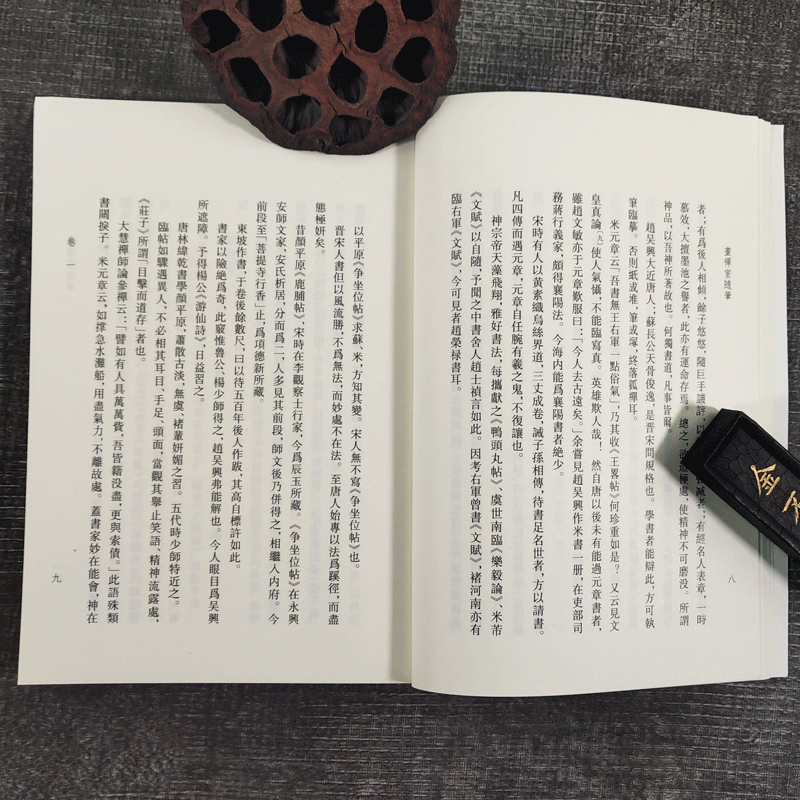 畫禪室隨筆
八
者；有爲後人相傾，餘子悠悠，隨巨手譏評，以
減者；有經名人表章，一時
慕效，大擅墨池之譽者，此亦有運命存焉。總之，欲造極處，使精神不可磨没。所謂
神品，以吾神所著故也。何獨書道，凡事皆爾。
趙吴興大近唐人；蘇長公天骨俊逸，是晋宋間規格也。學書者能辯此，方可執
筆臨摹。否則紙成堆，筆成塚，終落狐禪耳。
米元章云：「吾書無王右軍一點俗氣」，乃其收《王畧帖》何珍重如是？又云見文
皇真論〔九〕，使人氣懾，不能臨寫真。英雄欺人哉！然自唐以後未有能過元章書者，
雖趙文敏亦于元章歎服曰：「今人去古遠矣。」余嘗見趙吴興作米書一册，在吏部司
務蔣行義家，頗得襄陽法。今海内能爲襄陽書者絶少。
宋時有人以黄素織烏絲界道，三丈成卷，誡子孫相傳，待書足名世者，方以請書。
凡四傳而遇元章，元章自任腕有羲之鬼，不復讓也。
神宗帝天藻飛翔，雅好書法，每攜獻之《鴨頭丸帖》、虞世南臨《樂毅論》、米芾
《文賦》以自隨，予聞之中書舍人趙士禎言如此。因考右軍曾書《文賦》，褚河南亦有
臨右軍《文賦》，今可見者趙榮禄書耳。
以平原《争坐位帖》求蘇、米，方知其變。宋人無不寫《争坐位帖》也。
晋宋人書但以風流勝，不爲無法，而妙處不在法。至唐人始專以法爲蹊徑，而盡
態極妍矣。
昔顔平原《鹿脯帖》，宋時在李觀察士行家，今爲辰玉所藏。《争坐位帖》在永興
安師文家，安氏析居，分而爲二，人多見其前段，師文後乃併得之，相繼入内府。今
前段至「菩提寺行香」止，爲項德新所藏。
東坡作書，于卷後餘數尺，曰以待五百年後人作跋，其高自標許如此。
書家以險絶爲奇，此竅惟魯公、楊少師得之，趙吴興弗能解也。今人眼目爲吴興
所遮障。予得楊公《游仙詩》，日益習之。
唐林緯乾書學顔平原，蕭散古淡，無虞、褚輩妍媚之習。五代時少師特近之。
臨帖如驟遇異人，不必相其耳目、手足、頭面，當觀其舉止笑語、精神流露處，
《莊子》所謂「目擊而道存」者也。
大慧禪師論參禪云：「譬如有人具萬萬貲，吾皆籍没盡，更與索債。」此語殊類
書關捩子。米元章云，如撑急水灘船，用盡氣力，不離故處。蓋書家妙在能會，神在
卷一
九
金不